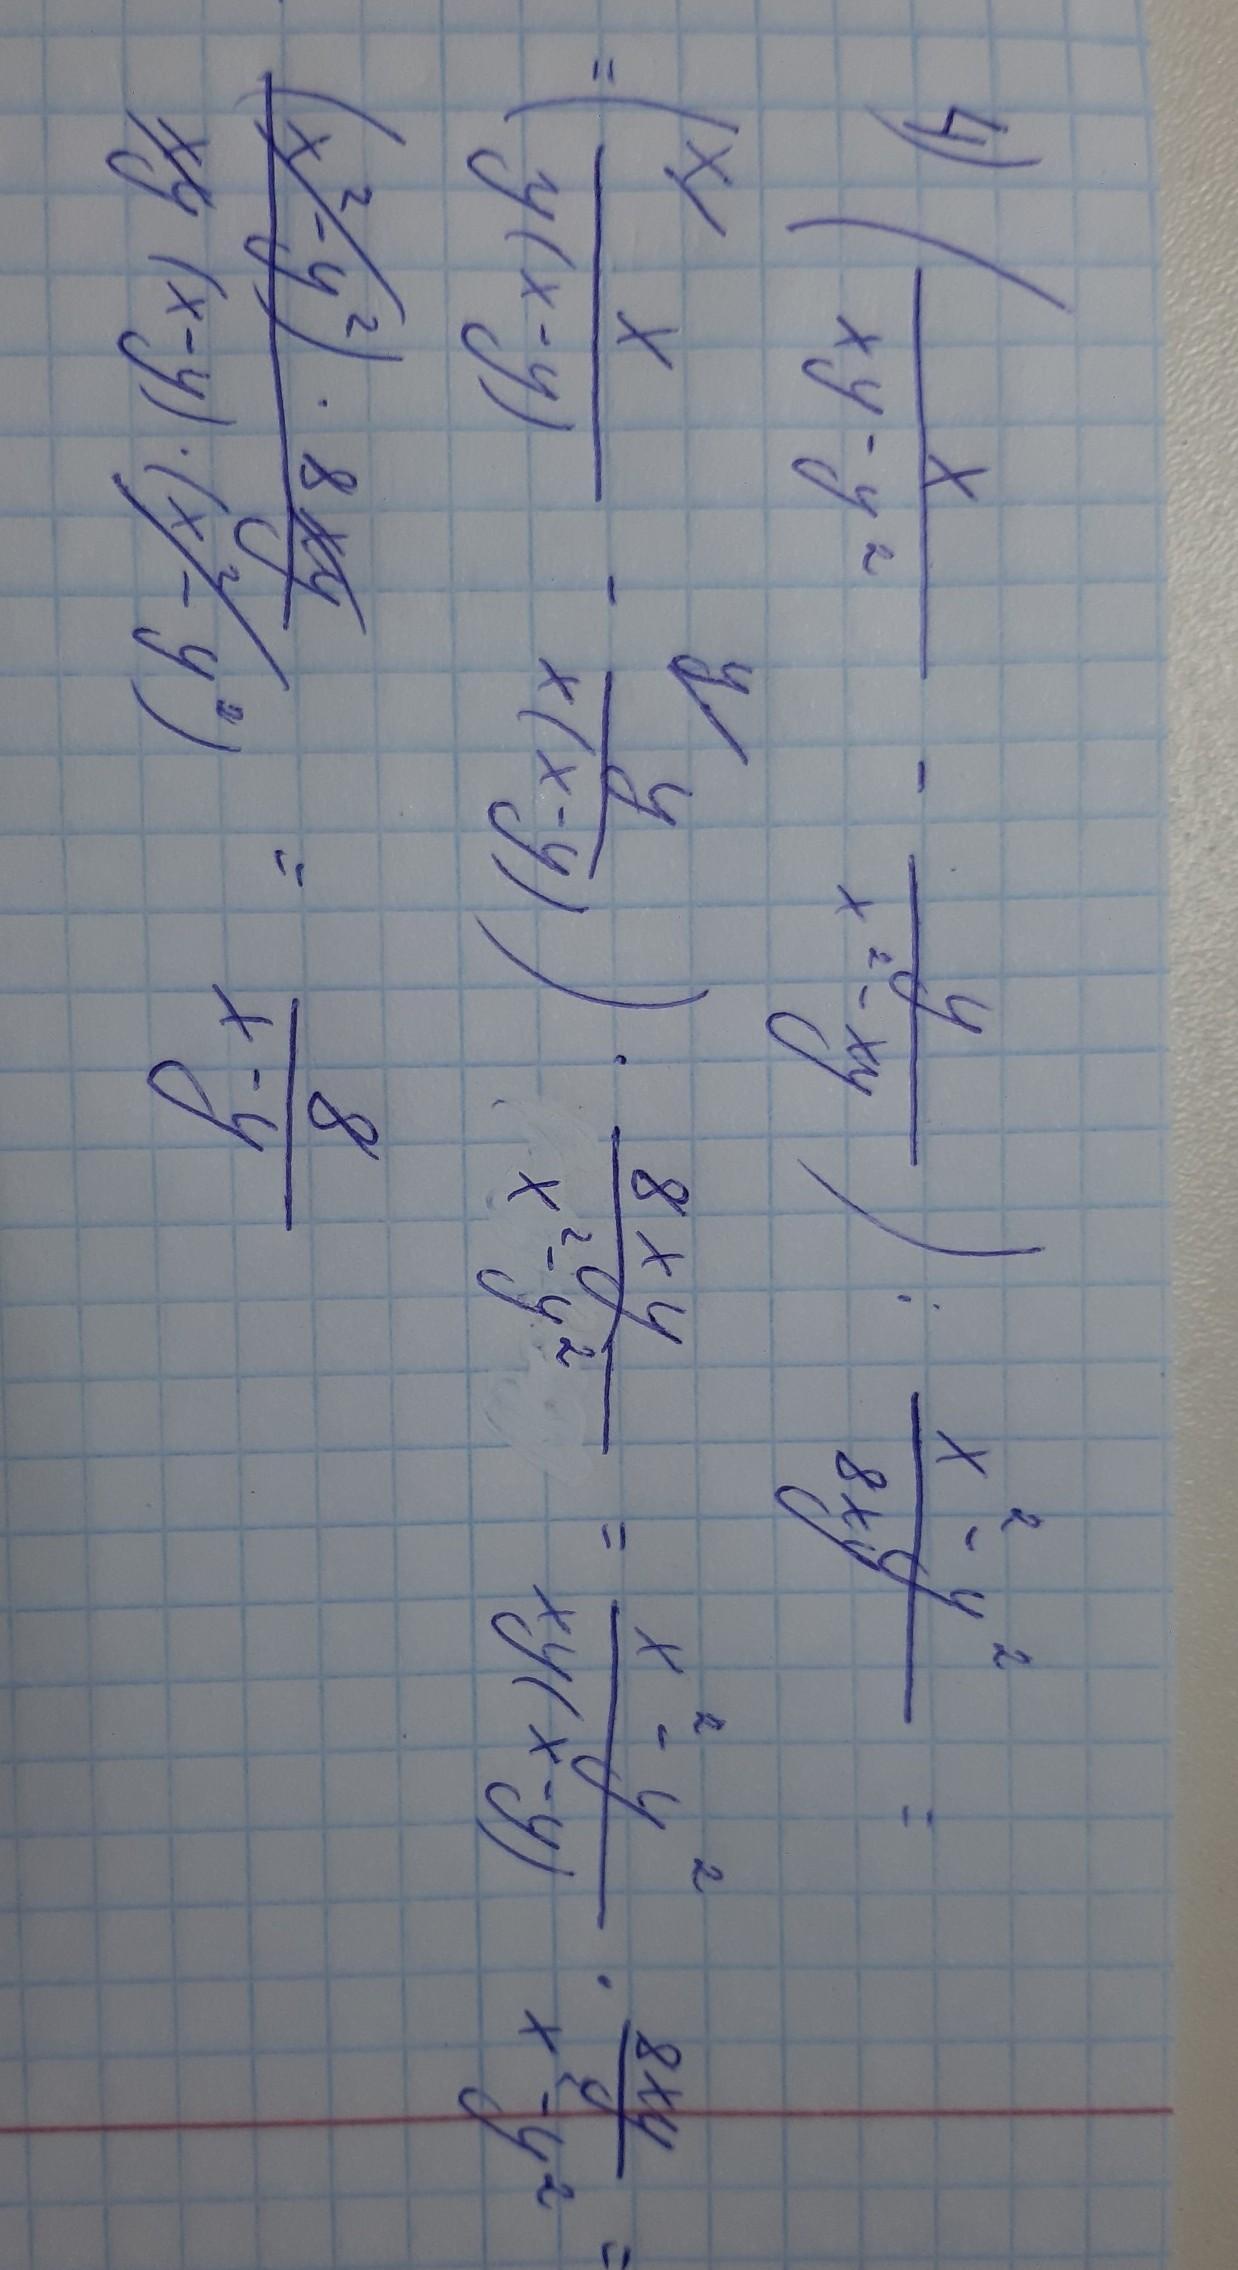 4) ( x/(xy - y²) - y/(x² - xy) ) : (x² - y²)/(8xy) =
= ( x/ x/(y(x - y)) - y/ y/(x(x - y)) ) · 8xy/(x² - y²) = (x² - y²)/(xy(x - y)) · 8xy/(x² - y²) =
((x² - y²) · 8xy)/(xy (x - y) · (x² - y²)) = 8/(x - y)